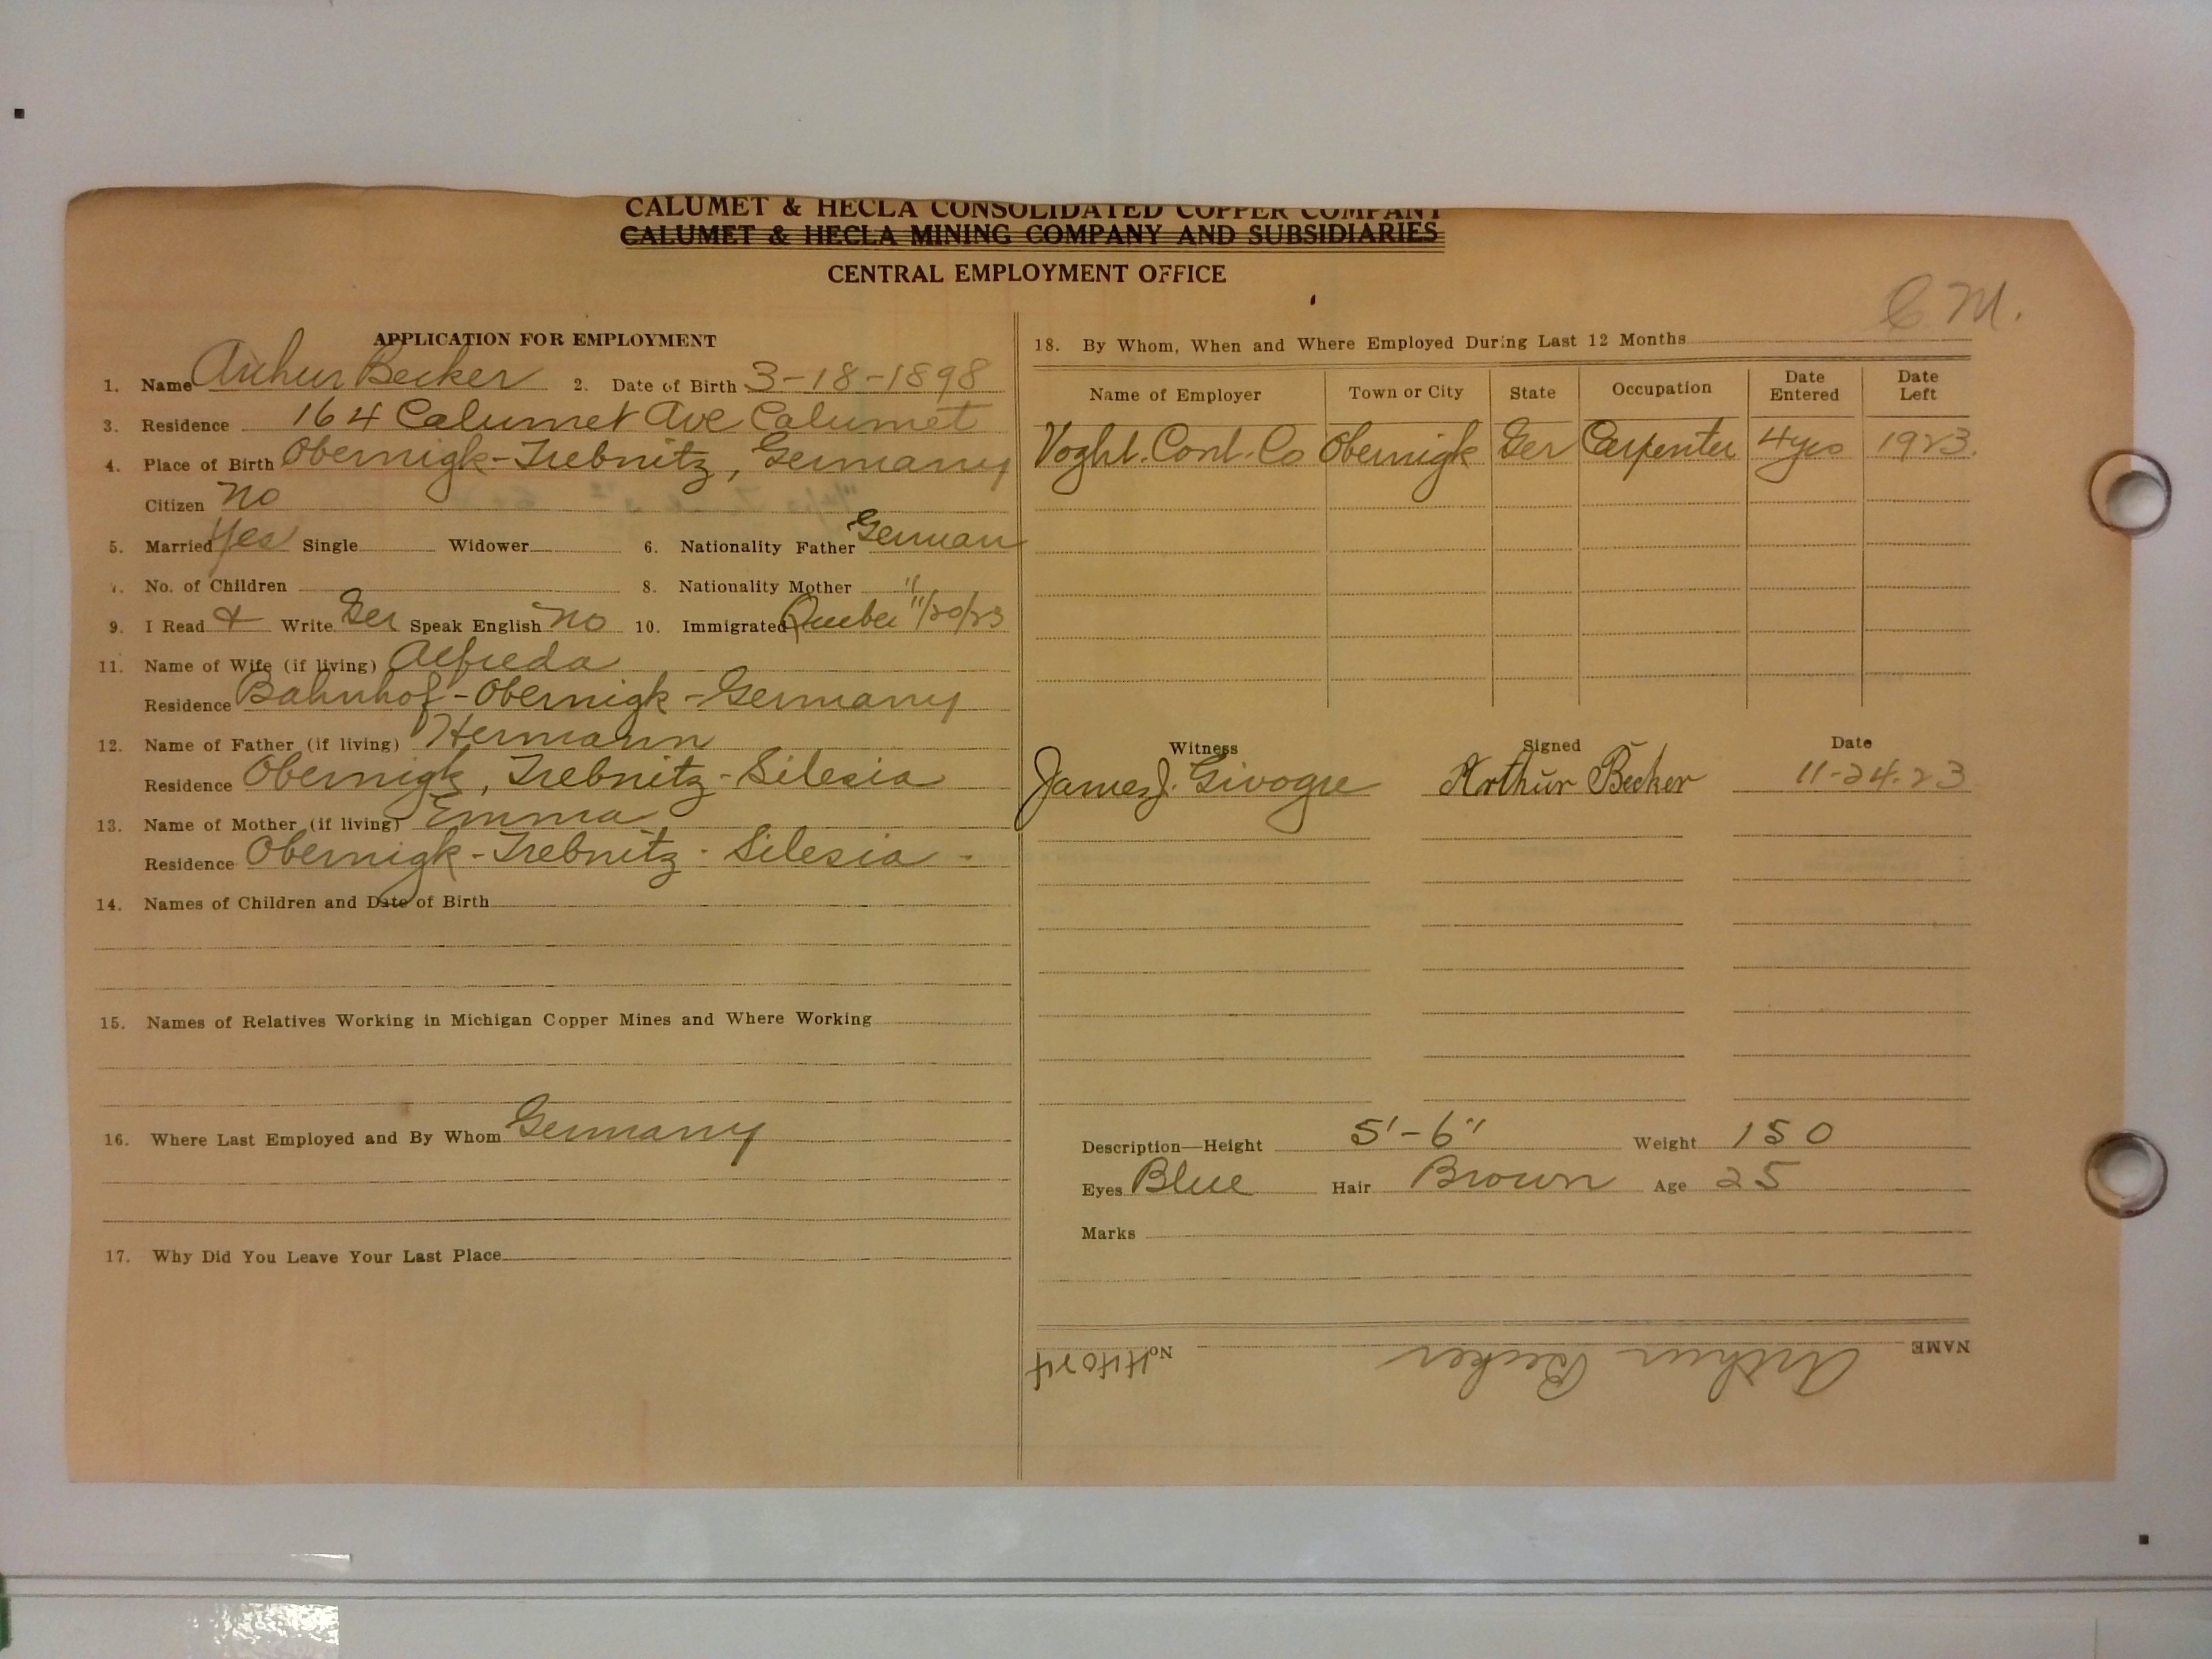 CALUMET & HECLA CONSOLIDATED COPPER COMPANY
CALUMET & HECLA MINING COMPANY AND SUBSIDIARIES
CENTRAL EMPLOYMENT OFFICE
C M.
APPLICATION FOR EMPLOYMENT
1. Name Arthur Becker 2. Date of Birth 3-18-1898
3. Residence 164 Calumet Ave Calumet
4. Place of Birth Obernigk-Trebnitz, Germany
Citizen no
5. Married Yes Single Widower 6. Nationality Father German
No. of Children 8. Nationality Mother "
9. I Read & Write Ger Speak English no 10. Immigrated Quebec 11/20/23
11. Name of Wife (if living) Alfreda
Residence Bahnhof-Obernigk-Germany
12. Name of Father (if living) Hermann
Residence Obernigk, Trebnitz-Silesia
13. Name of Mother (if living) Emma
Residence Obernigk-Trebnitz-Silesia-
14. Names of Children and Date of Birth
15. Names of Relatives Working in Michigan Copper Mines and Where Working
16. Where Last Employed and By Whom Germany
17. Why Did You Leave Your Last Place
18. By Whom, When and Where Employed During Last 12 Months
Name of Employer Town or City State Occupation Date Entered Date Left
Voght. Cont. Co Obernigk Ger Carpenter 4 yrs 1923.
Witness Signed Date
James J. Givogre Arthur Becker 11-24-23
Description—Height 5'-6" Weight 150
Eyes Blue Hair Brown Age 25
Marks
NAME Arthur Becker No.